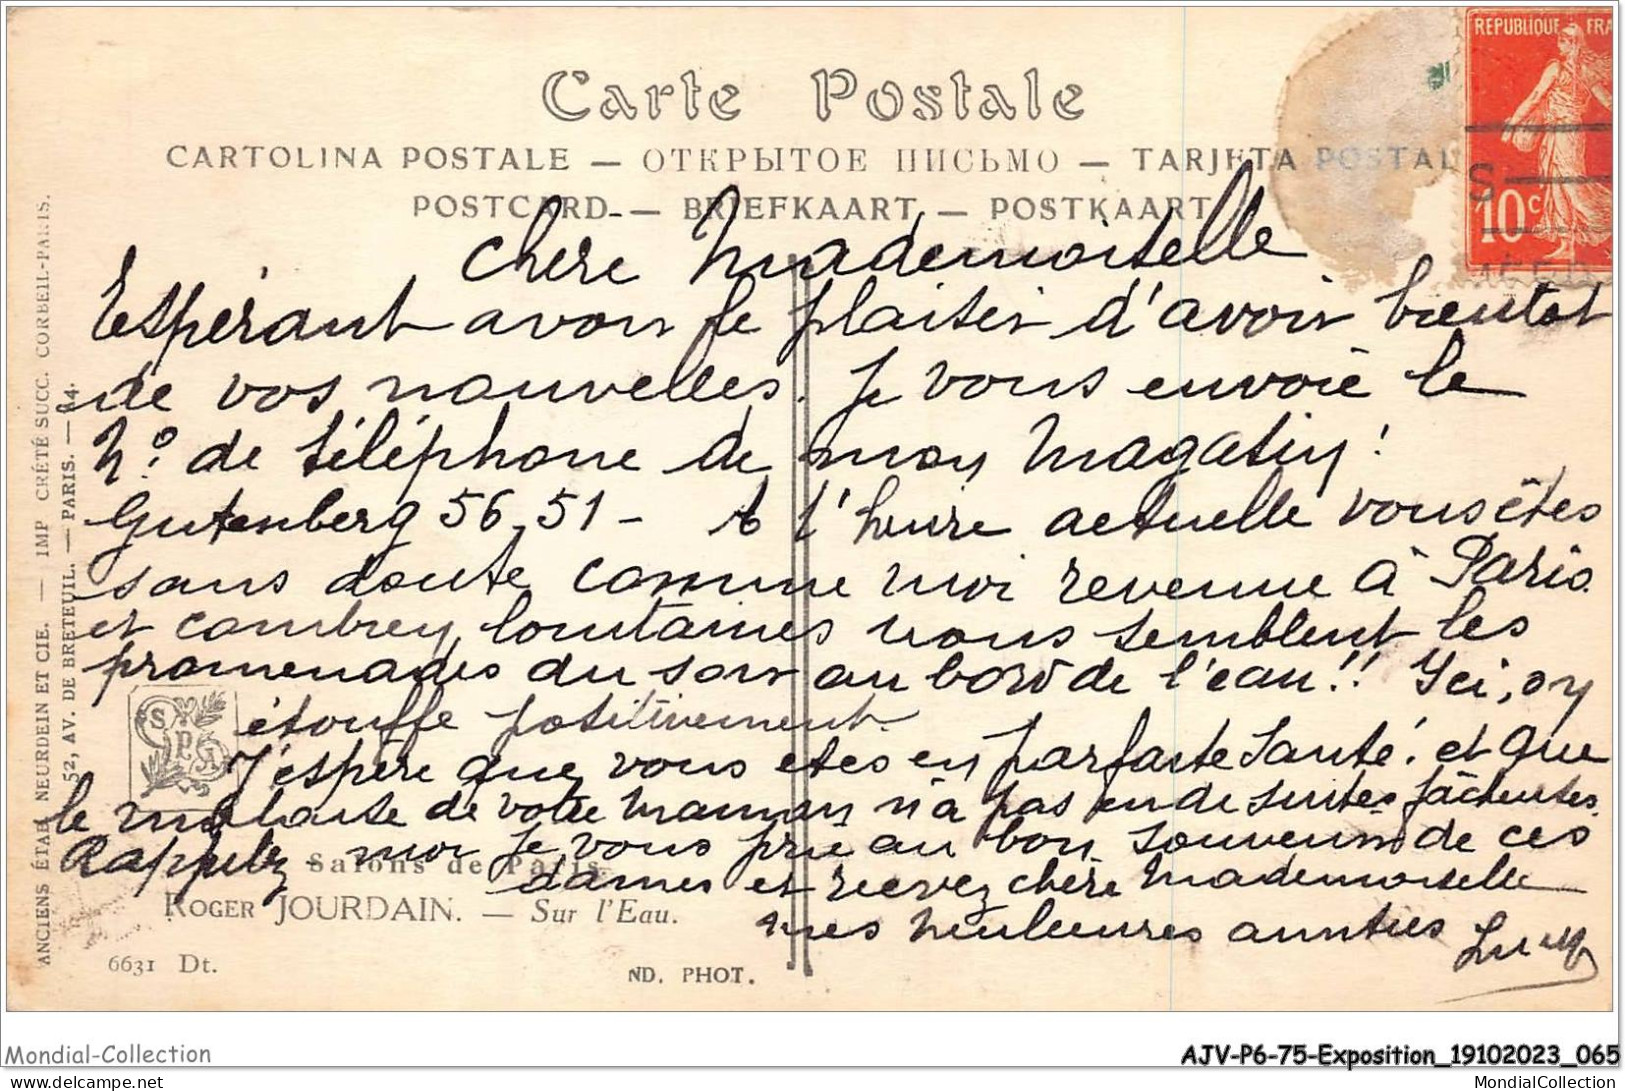 Carte Postale
CARTOLINA POSTALE — ОТКРЫТОЕ ПИСЬМО — TARJETA POSTAL
POSTCARD — BRIEFKAART — POSTKAART
REPUBLIQUE FRA
10c
S
Chère Mademoiselle
Espérant avoir le plaisir d'avoir bientot
de vos nouvelles. Je vous envoie le
N.o de téléphone de mon Magasin!
Gutenberg 56,51 - A l'heure actuelle vous êtes
sans doute comme moi revenue à Paris
et combien lointaines nous semblent les
promenades du soir au bord de l'eau!! Ici, on
étouffe positivement
J'espère que vous etes en parfaite santé! et que
le malaise de votre maman n'a pas eu de suites fâcheuses.
Rappelez moi je vous prie au bon souvenir de ces
dames et recevez chère Mademoiselle
mes meilleures amitiés
Salons de Paris.
ROGER JOURDAIN. — Sur l'Eau.
6631 Dt.
ND. PHOT.
SPA
ANCIENS ÉTAB NEURDEIN ET CIE. — IMP CRÉTÉ SUCC. CORBEIL-PARIS.
52, AV. DE BRETEUIL. — PARIS. —
Mondial-Collection
AJV-P6-75-Exposition_19102023_065
delcampe.net
MondialCollection